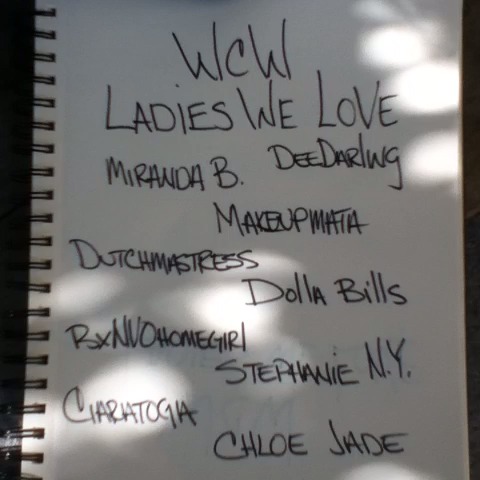 WCW
LADIES WE LOVE
MIRANDA B. DEEDARLING
MAKEUPMATA
DUTCHMASTRESS
Dolla Bills
BxNVOHOMEGIRl
STEPHANIE N.Y.
CIARATOGIA
CHLOE JADE